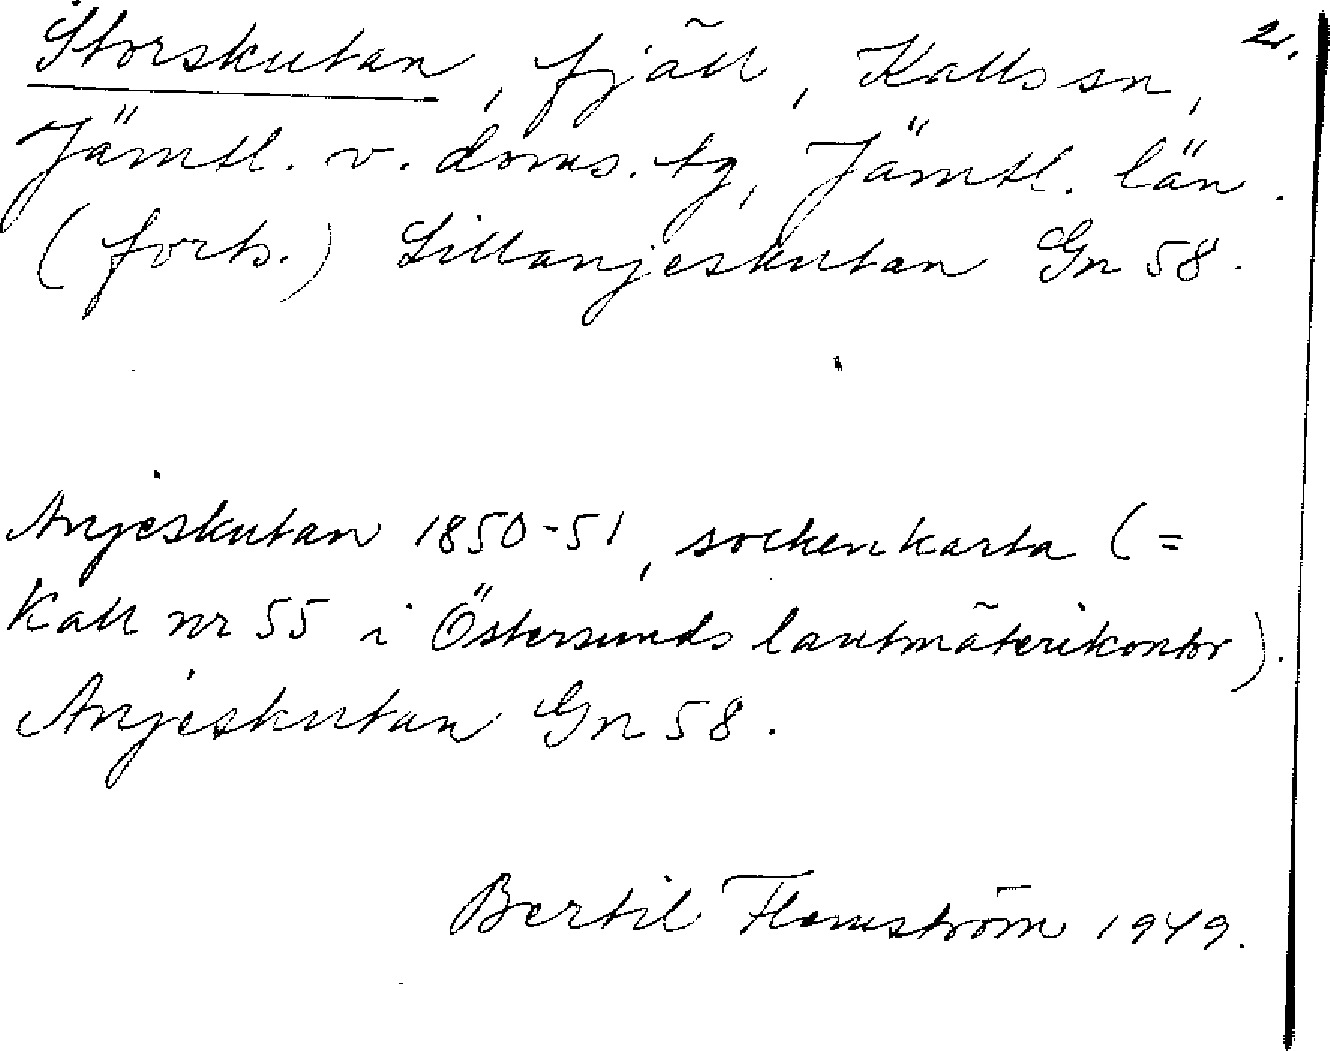 Storskutan, fjäll, Kalls sn, 2.
Jämtl. v. doms. tg, Jämtl. län.
(forts.) Lillanjeskutan Gn 58.
Anjeskutan 1850-51, sockenkarta (=
Kall nr 55 i Östersunds lantmäterikontor).
Anjeskutan Gn 58.
Bertil Flemström 1949.